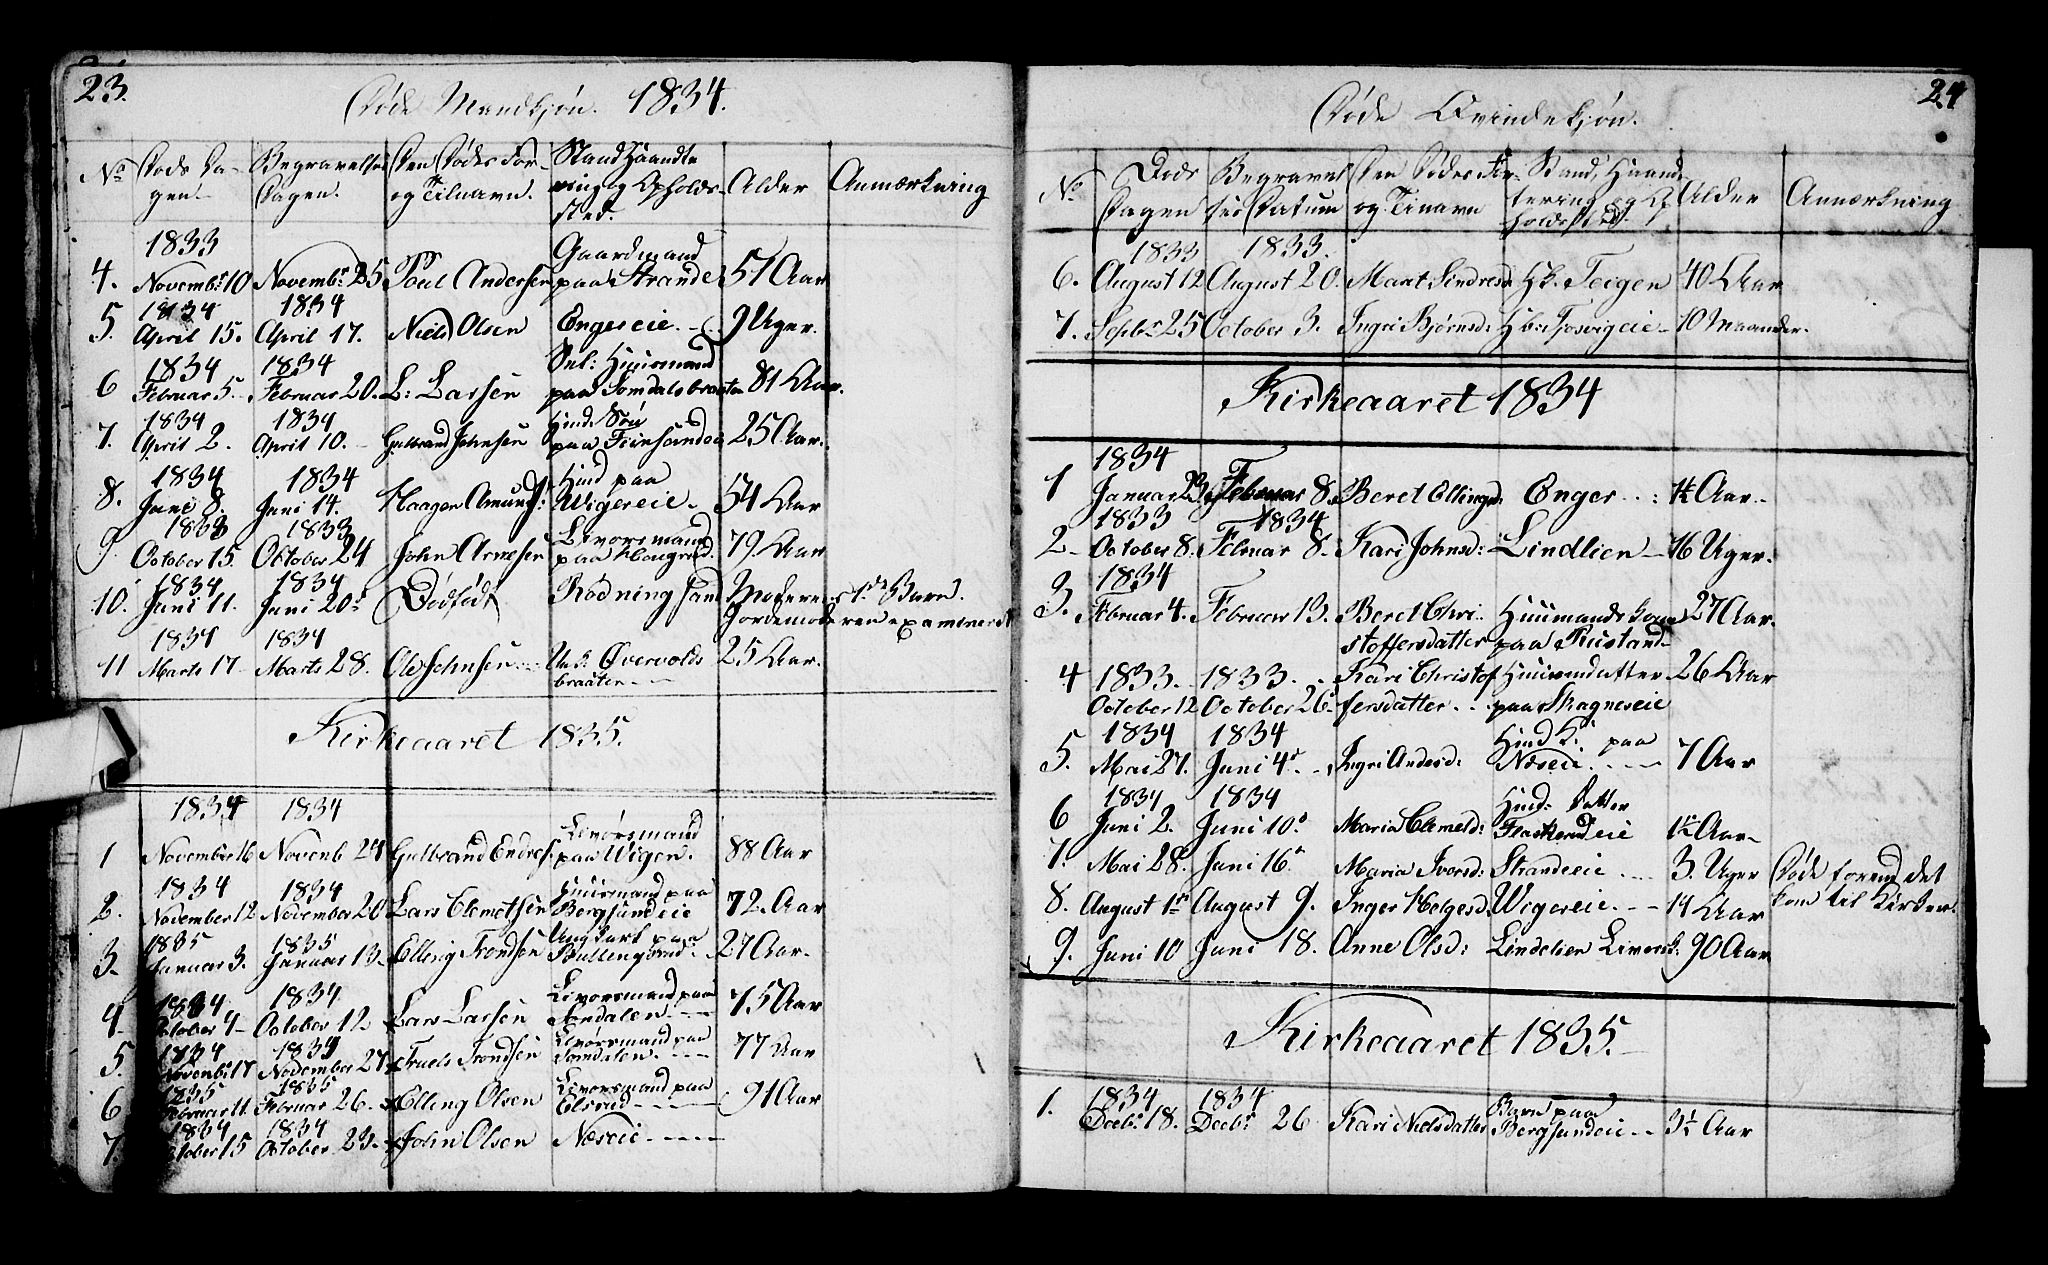 23.
Døde Mandkjøn. 1834.
No Døds Da- Begravelses Den Dødes For- Stand Haandte Alder Anmærkning
gen. Dagen. og Tilnavn. ring og Opholds-
sted.
1833 Gaardmand
4. Novembr 10 Novembr 25 Poul Andersen paa Strande 51 Aar
1834 1834
5. April 15. April 17. Niels Olsen Engereie 9 Uger.
1834 1834 Huusmand
6 Februar 5. Februar 20. L: Larsen paa Somdalsbraaten 81 Aar.
1834 1834 Huusmd Søn
7. April 2. April 10. Gulbrand Johnsen paa 25 Aar.
1834 1834 Hmd paa
8. Juni 8. Juni 14. Haagen Amunds: Wigereie 54 Aar
1833 1833 Livørsmand
9. October 15. October 24 John Arnesen paa Hougrud. 79. Aar
1834 1834
10. Juni 11. Juni 20de Dødfødt Rødningsand Moderens 1ste Barn.
Jordemoderen examineret
1834 1834
11 Marts 17 Marts 28. Ole Johnsen Øvervolds 25 Aar.
braaten
Kirkeaaret 1835.
1834 1834 Livørsmand
1 November 16 Novenb 24 Gulbrand Endres: paa Wigen. 88 Aar
1834 1834 Huusmand paa
2. November 12 November 20 Lars Clemetsen Bergsundeie 72. Aar
1835 1835 Ungkarl paa
3. Januar 3. Januar 13. Elling Trondsen Bullengsrud 27 Aar.
1834 1834 Livørsmand paa
4 October 4 October 12 Lars Larsen Somdalen 75 Aar
1834 1834 Livørsmand paa
5. Novenbr 17 November 27 Truels Trondsen Somdalen. 77 Aar
1835 1835 Livorsmand paa
6. Februar 11. Februar 26. Elling Olsen Elsrud 91 Aar
1834 1834
7. October 15 October 23. John Olsen Næseie
24
Døde Qvindekjøn.
No Døds Begravel Den Dødes For- Stand, Haand Alder Anmærkning
Dagen ses Datum og Tinavn tering og Op
holdssted.
1833 1833.
6. August 12 August 20. Marit Sindresd Hk. Teigen 40 Aar
7. Septbr 25 October 3. Ingri Bjørnsd: Hb: Tosvigeie 10 Maander.
Kirkeaaret 1834
1834
1 Januar 23 Februar 8. Beret Ellingsd. Enger 1½ Aar
1833 1834
2 October 8. Februar 8. Kari Johnsd: Lindlien 16 Uger.
1834
3. Februar 4. Februar 13. Beret Chri- Huusmands kone 27 Aar.
stoffersdatter paa Rustand
4 1833. 1833. Kari Christof Huusmdatter 26 Aar
October 12 October 26 fersdatter paa Skagneseie
1834 1834 Hmd K: paa
5. Mai 27. Juni 4de Ingri Andesd: Næseie 7 Aar
1834 1834 Hmd: Datter
6 Juni 2. Juni 10de Maria Clemetsd: Flaskerudeie 1½ Aar
7. Mai 28. Juni 16de Maria Ivorsd: Strandeeie 3. Uger Døde forend det
8. August 1ste August 9. Inger Helgesd: Wigereie 14 Aar kom til Kirken.
9. Juni 10 Juni 18. Anne Olsd: Lindelien Liverk: 90 Aar
Kirkeaaret 1835.
1834 1834 Barn paa
1. Decbr 18. Decbr 26 Kari Nielsdatter Bergsundeie 3½ Aar